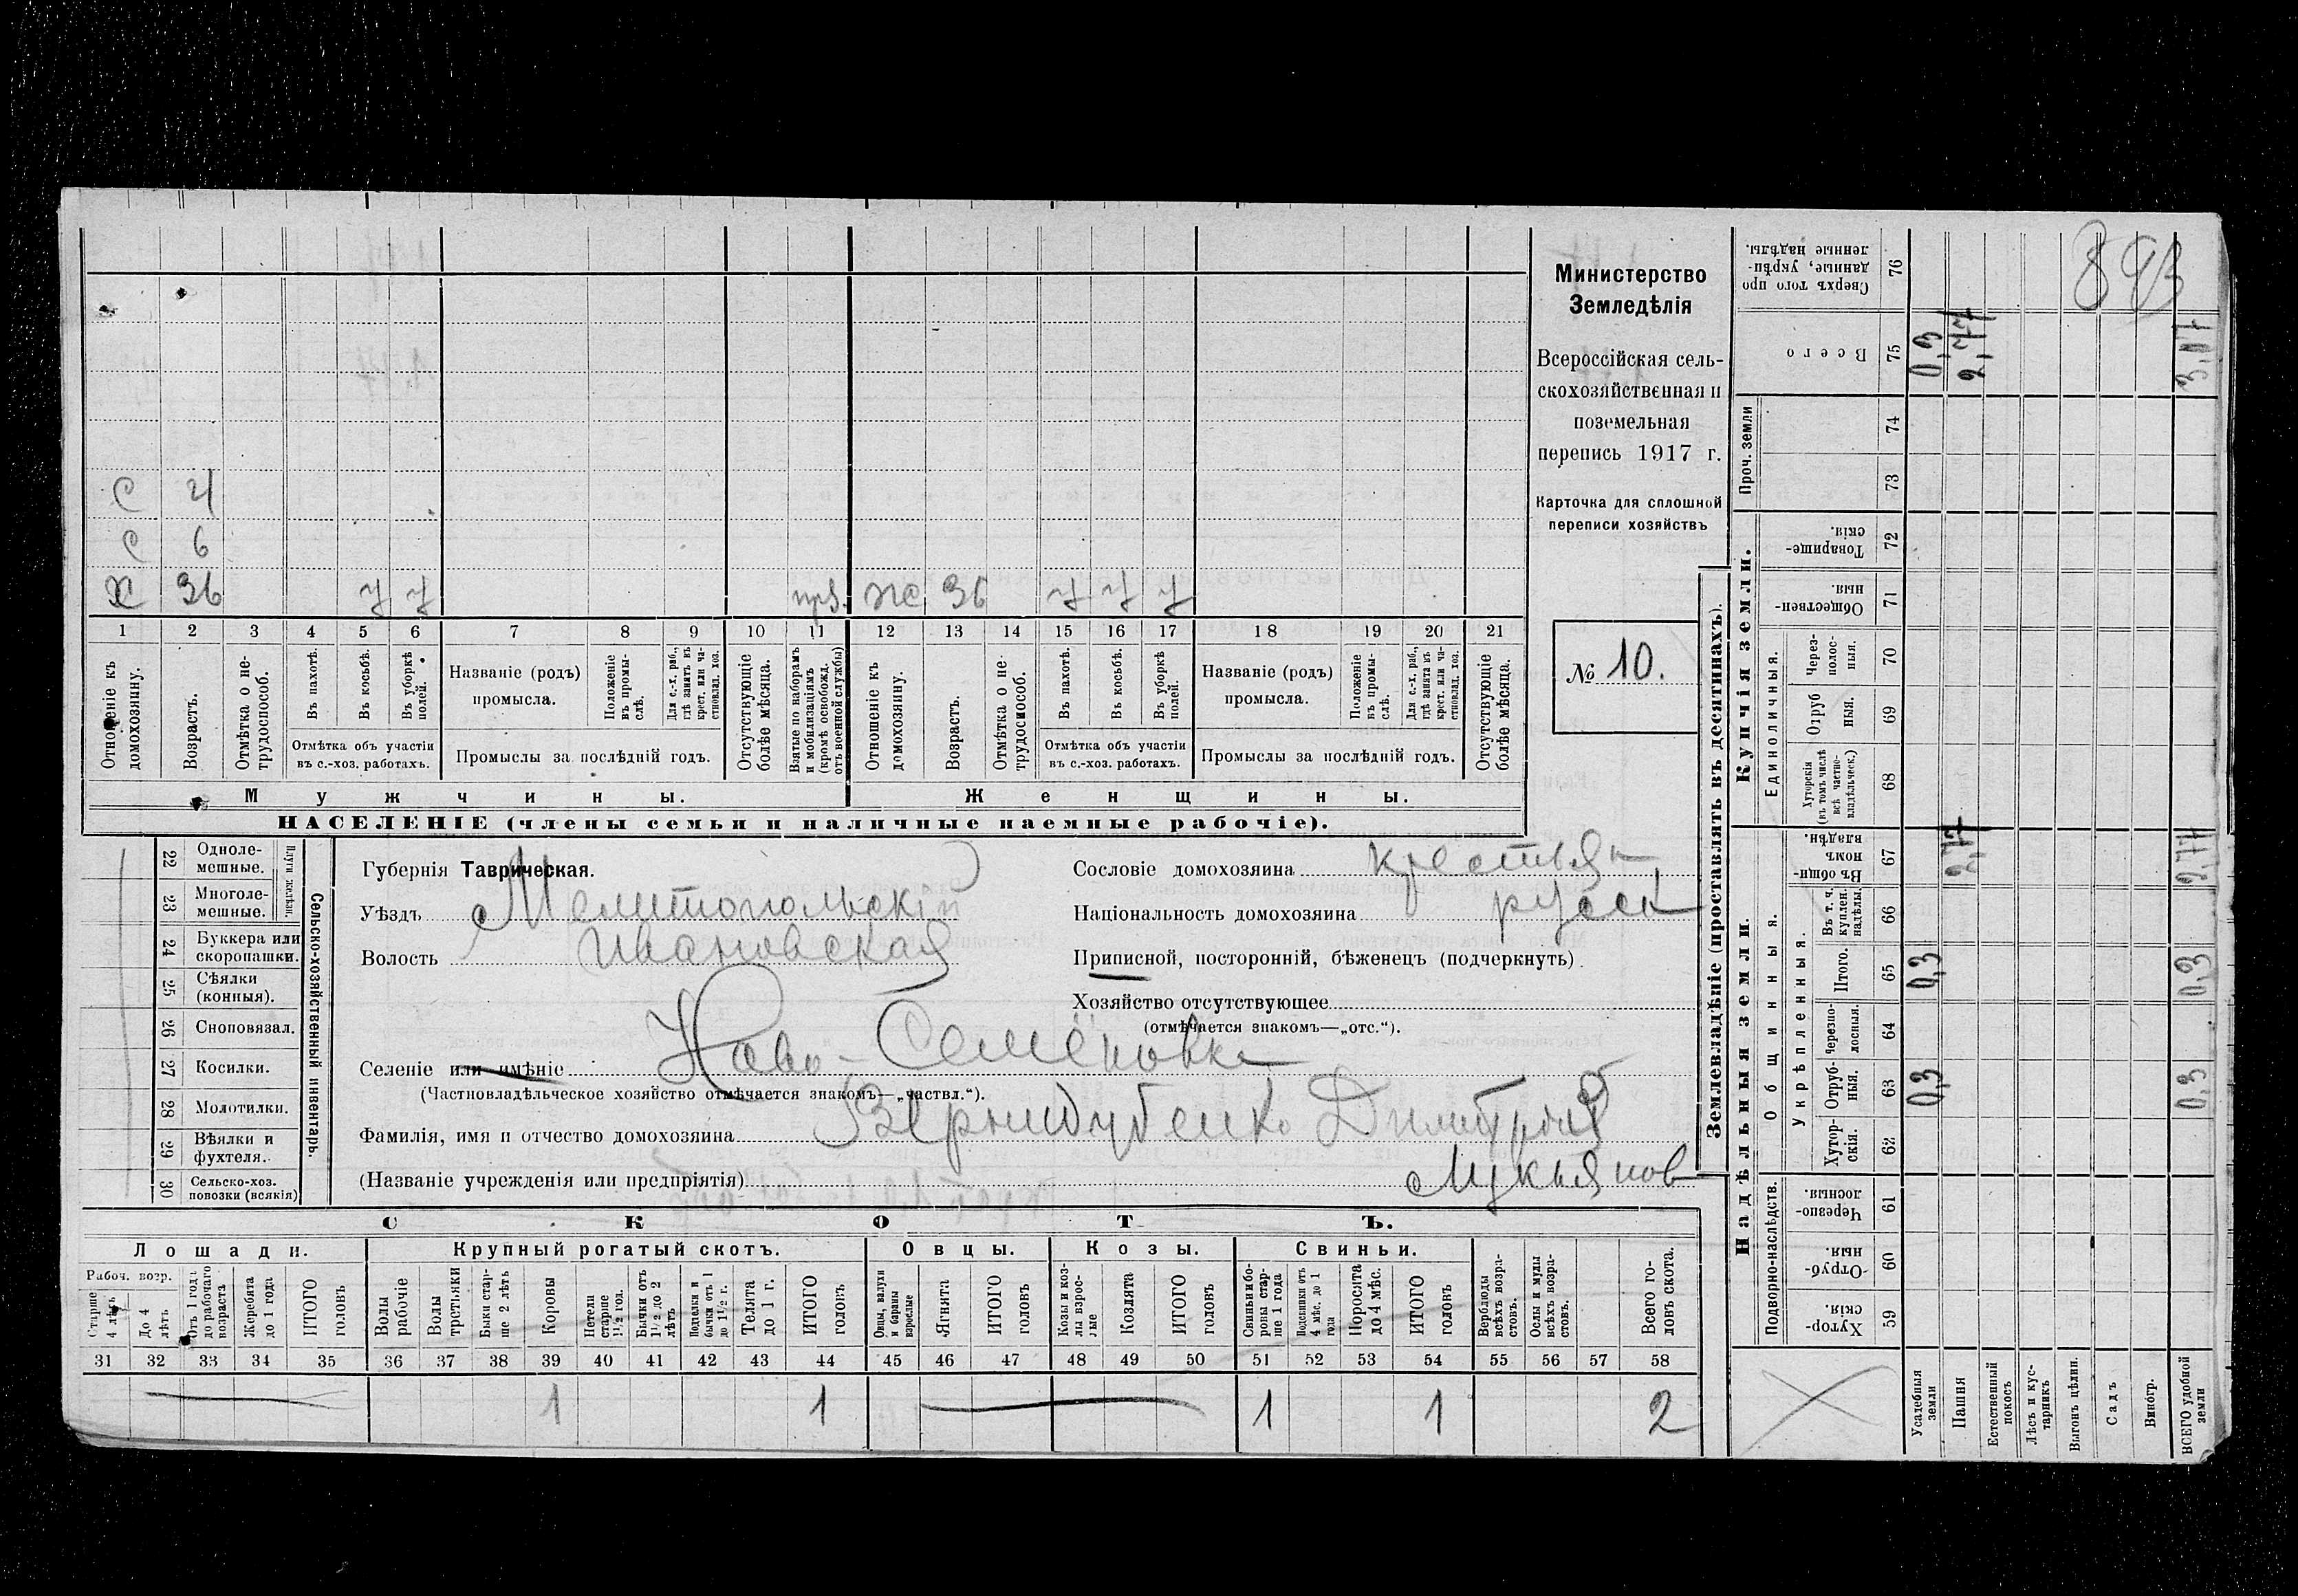 893
Министерство
Земледѣлія
Всероссійская сель-
скохозяйственная и
поземельная
перепись 1917 г.
Карточка для сплошной
переписи хозяйствъ
№ 10.
С 4
С 6
Х 36 у у прз. ж 36 у у у
1 2 3 4 5 6 7 8 9 10 11 12 13 14 15 16 17 18 19 20 21
Отношеніе къ домохозяину.
Возрастъ.
Отмѣтка о не-трудоспособ.
Въ пахотѣ.
Въ косьбѣ.
Въ уборкѣ полей.
Отмѣтка объ участіи
въ с.-хоз. работахъ.
Названіе (родъ)
промысла.
Положеніе въ промы-слѣ.
Для с.-х. раб., гдѣ занятъ въ крест. или ча-стновлад. хоз.
Промыслы за послѣдній годъ.
Отсутствующіе болѣе мѣсяца.
Взятые по наборамъ и мобилизаціямъ (кромѣ освобожд. отъ военной службы)
Отношеніе къ домохозяину.
Возрастъ.
Отмѣтка о не-трудоспособ.
Въ пахотѣ.
Въ косьбѣ.
Въ уборкѣ полей.
Отмѣтка объ участіи
въ с.-хоз. работахъ.
Названіе (родъ)
промысла.
Положеніе въ промы-слѣ.
Для с.-х. раб., гдѣ занята въ крест. или ча-стновлад. хоз.
Промыслы за послѣдній годъ.
Отсутствующіе болѣе мѣсяца.
Мужчины.
Женщины.
НАСЕЛЕНІЕ (члены семьи и наличные наемные рабочіе).
22 Одноле-мешные.
23 Многоле-мешные.
Плуги желѣзн.
24 Буккера или скоропашки.
25 Сѣялки (конныя).
26 Сноповязал.
27 Косилки.
28 Молотилки.
29 Вѣялки и фухтеля.
30 Сельско-хоз. повозки (всякія)
Сельско-хозяйственный инвентарь.
Губернія Таврическая.
Уѣздъ Мелитопольскій
Волость Ивановская
Селеніе или имѣніе Ново-Семёновка
(Частновладѣльческое хозяйство отмѣчается знакомъ—„частвл.“).
Фамилія, имя и отчество домохозяина Дмитрій
(Названіе учрежденія или предпріятія) Лукьянов
Сословіе домохозяина крестьян
Національность домохозяина русск
Приписной, посторонній, бѣженецъ (подчеркнуть)
Хозяйство отсутствующее
(отмѣчается знакомъ—„отс.“).
СКОТЪ.
Лошади.
Крупный рогатый скотъ.
Овцы.
Козы.
Свиньи.
Рабоч. возр.
Старше 4 лѣтъ
До 4 лѣтъ
Отъ 1 года до рабочаго возраста
Жеребята до 1 года
ИТОГО головъ
Волы рабочіе
Волы третьяки
Быки стар-ше 2 лѣтъ
Коровы
Нетели старше 1½ год.
Бычки отъ 1½ до 2 лѣтъ
Подтелки и бычки отъ 1 до 1½ г.
Телята до 1 г.
ИТОГО головъ
Овцы, валухи и бараны взрослые
Ягнята
ИТОГО головъ
Козы и коз-лы взрос-лые
Козлята
ИТОГО головъ
Свиньи и бо-ровы стар-ше 1 года
Подсвинки отъ 4 мѣс. до 1 года
Поросята до 4 мѣс.
ИТОГО головъ
Верблюды всѣхъ возра-стовъ.
Ослы и мулы всѣхъ возра-стовъ.
Всего го-ловъ скота.
31 32 33 34 35 36 37 38 39 40 41 42 43 44 45 46 47 48 49 50 51 52 53 54 55 56 57 58
1 1 1 1 2
Землевладѣніе (проставлять въ десятинахъ).
Надѣльныя земли.
Купчія земли.
Проч. земли
Подворно-наслѣдств.
Общинныя.
Укрѣпленныя.
Единоличныя.
Сверхъ того про-данные, укрѣп-ленные надѣлы. 76
Всего 75 0,3 2,77 3,07
74
73
Товарище-скія. 72
Обществен-ныя. 71
Через-полос-ныя. 70
Отруб ныя. 69
Хуторскія (въ томъ числѣ всѣ частно-владѣльческ.) 68
Въ общин-номъ владѣн. 67 2,77 2,77
Въ т. ч. куплен. надѣлы. 66
Итого. 65 0,3 0,3
Черезпо-лосныя. 64
Отруб-ныя. 63 0,3 0,3
Хутор-скія. 62
Черезпо-лосныя. 61
Отруб-ныя. 60
Хутор-скія. 59
Усадебныя земли
Пашня
Естественный покосъ
Лѣсъ и кус-тарникъ
Выгонъ цѣлин.
Садъ
Виногр.
ВСЕГО удобной земли